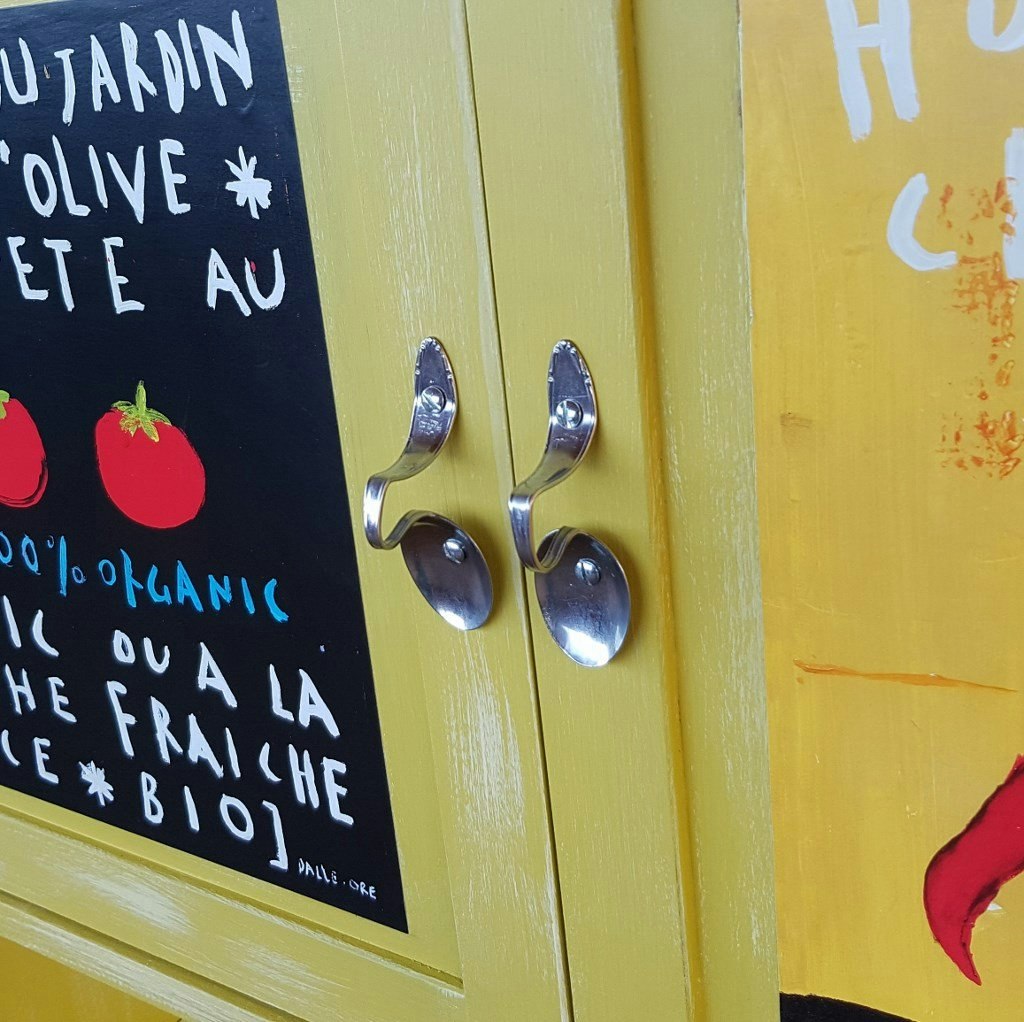 DU JARDIN
'OLIVE *
ETE AU
00% ORGANIC
IC OU A LA
HE FRAICHE
CE * BIO]
DALLE.ORE
H
C